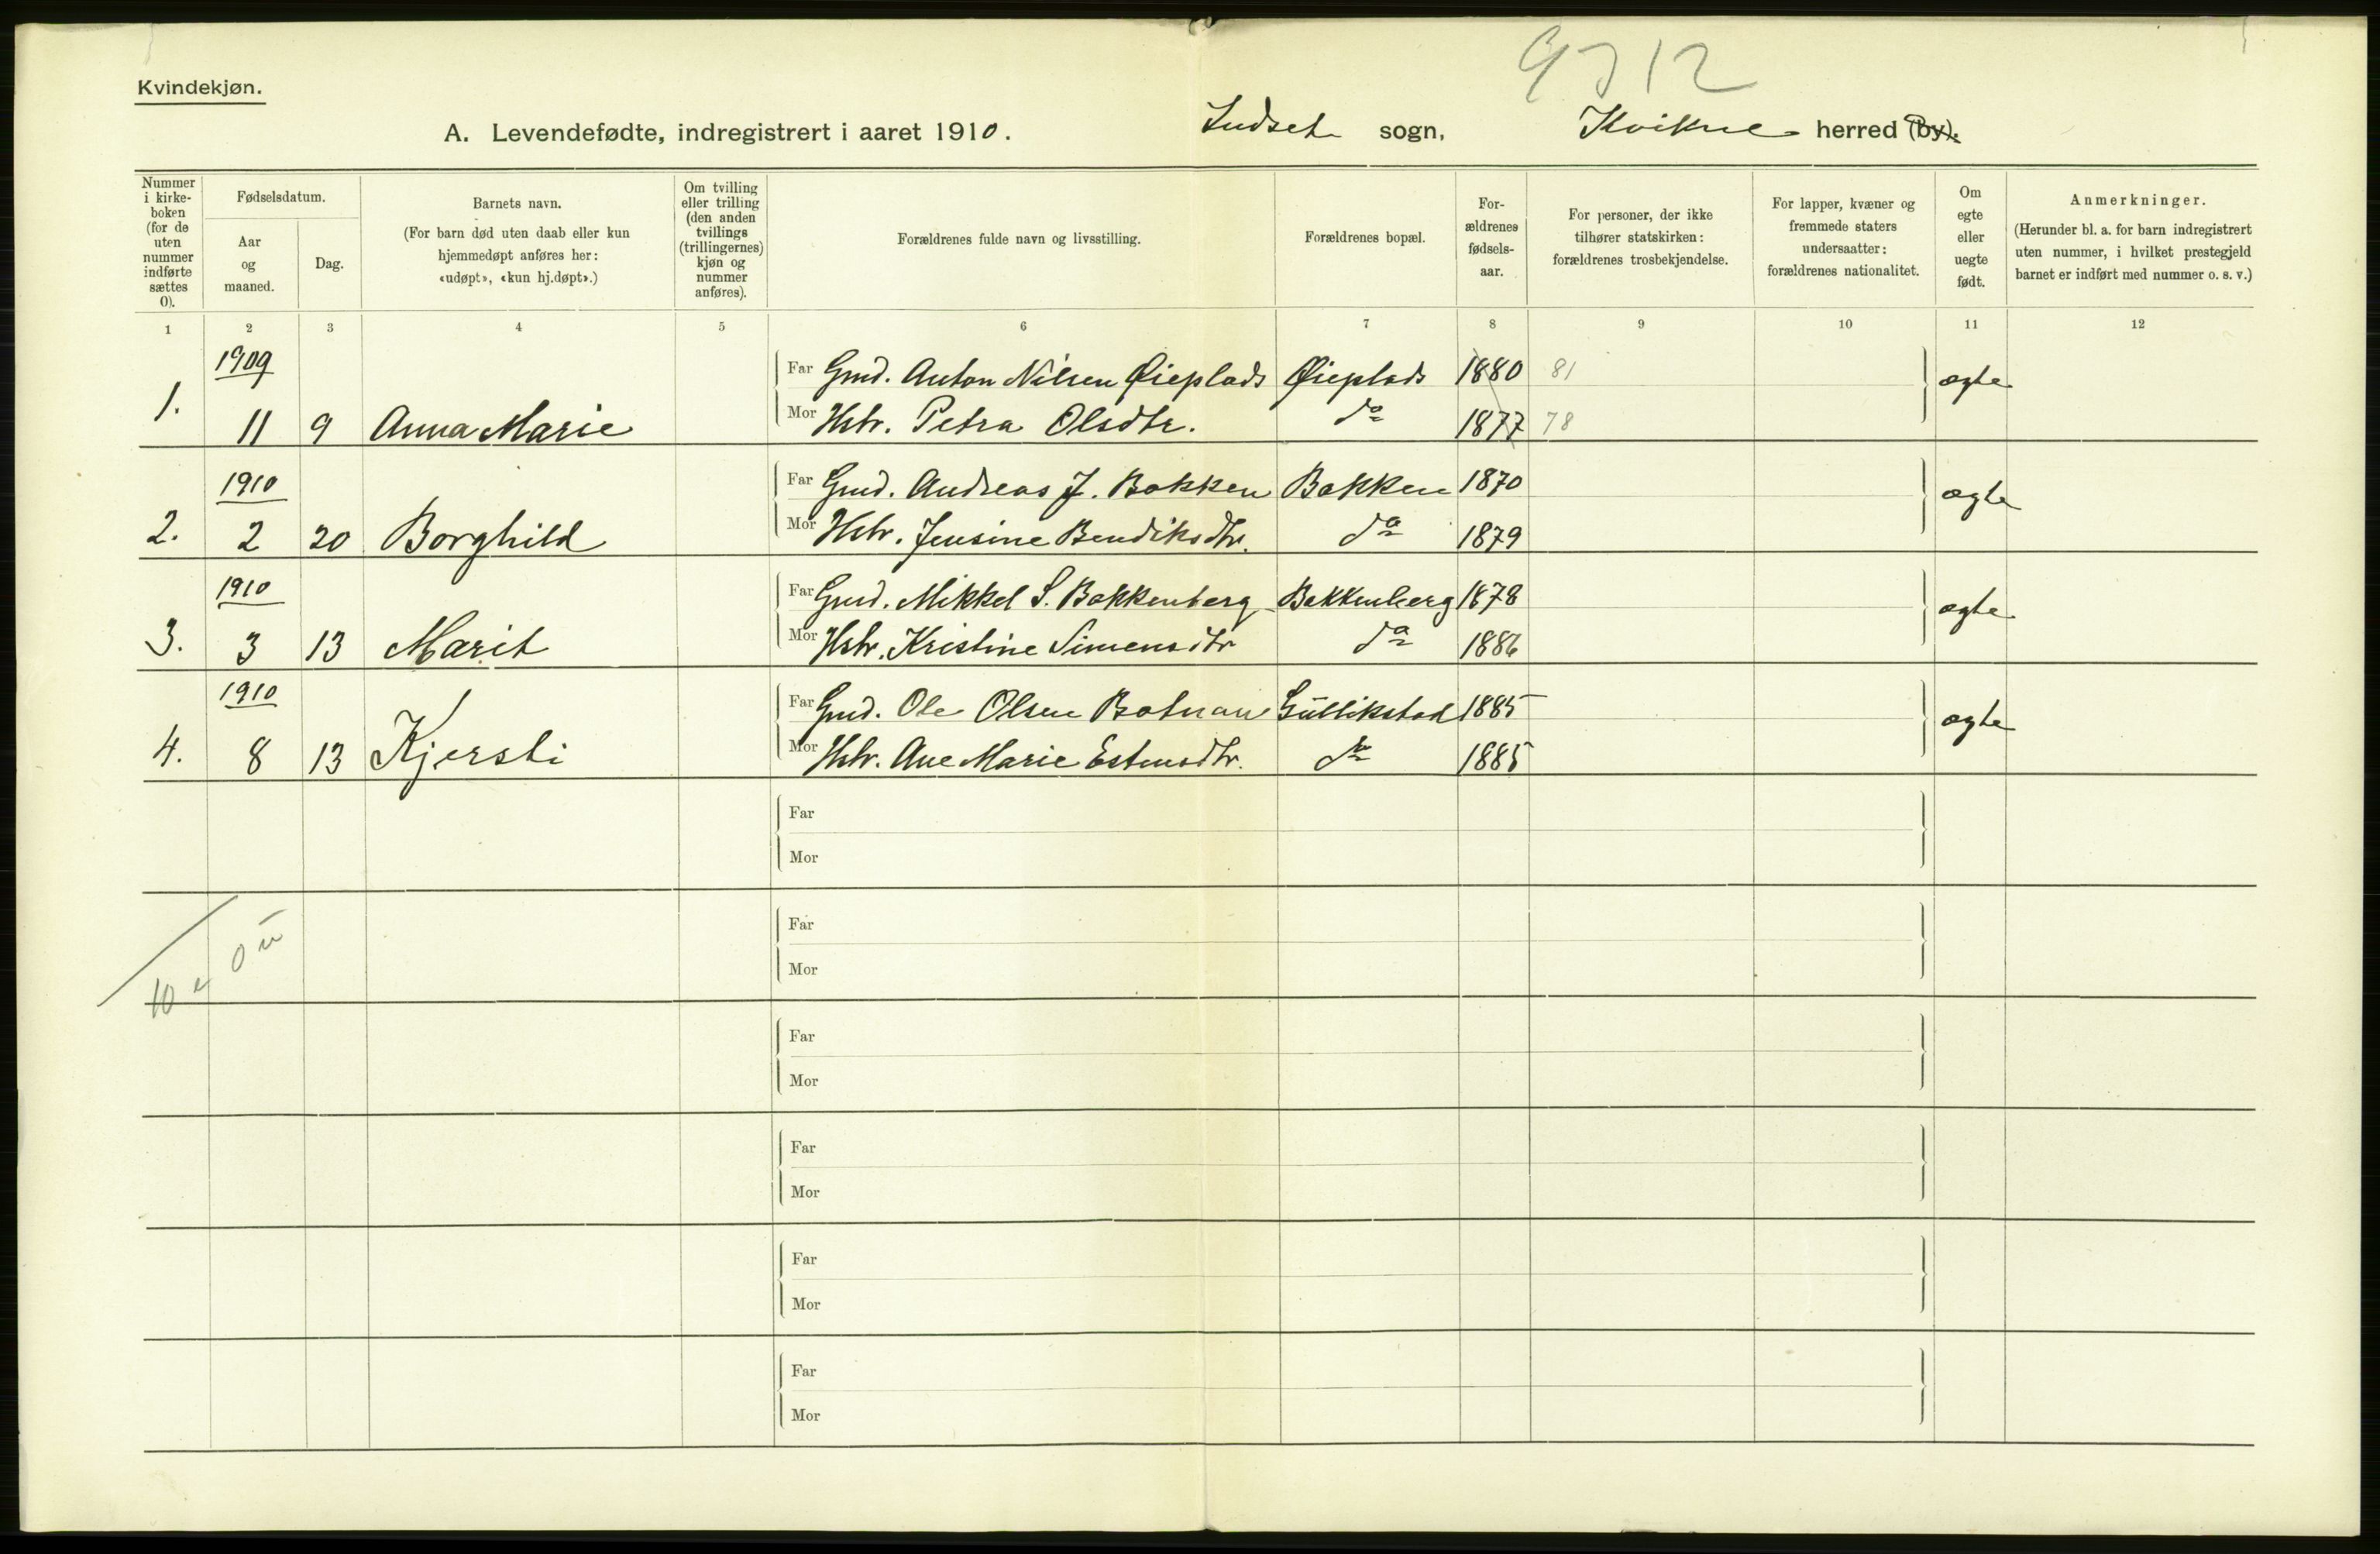 9 J 12
Kvindekjøn.
A. Levendefødte, indregistrert i aaret 1910. Indset sogn, Kvikne herred (by).
Nummer i kirke-boken (for de uten nummer indførte sættes 0).
Fødselsdatum.
Aar og maaned.
Dag.
Barnets navn.
(For barn død uten daab eller kun hjemmedøpt anføres her: «udøpt», «kun hj.døpt».)
Om tvilling eller trilling (den anden tvillings (trillingernes) kjøn og nummer anføres).
Forældrenes fulde navn og livsstilling.
Forældrenes bopæl.
For-ældrenes fødsels-aar.
For personer, der ikke tilhører statskirken: forældrenes trosbekjendelse.
For lapper, kvæner og fremmede staters undersaatter: forældrenes nationalitet.
Om egte eller uegte født.
Anmerkninger.
(Herunder bl. a. for barn indregistrert uten nummer, i hvilket prestegjeld barnet er indført med nummer o. s. v.)
1 2 3 4 5 6 7 8 9 10 11 12
1909
Far Gmd. Anton Nilsen Øieplads Øieplads 1880 81 ægte
1. 11 9 Anna Marie Mor Hstr. Petra Olsdtr. do 1877 78
1910
Far Gmd. Andreas J. Bakken Bakken 1870 ægte
2. 2 20 Borghild Mor Hstr. Jensine Bendiksdtr. do 1879
1910
Far Gmd. Mikkel S. Bakkenberg Bakkenberg 1878 ægte
3. 3 13 Marit Mor Hstr. Kristine Simensdtr do 1886
1910
Far Gmd. Ole Olsen Botnan Gullikstad 1885 ægte
4. 8 13 Kjersti Mor Hstr. Ane Marie Estensdtr. do 1885
Far
Mor
Far
0 u
Mor
10 e
Far
Mor
Far
Mor
Far
Mor
Far
Mor